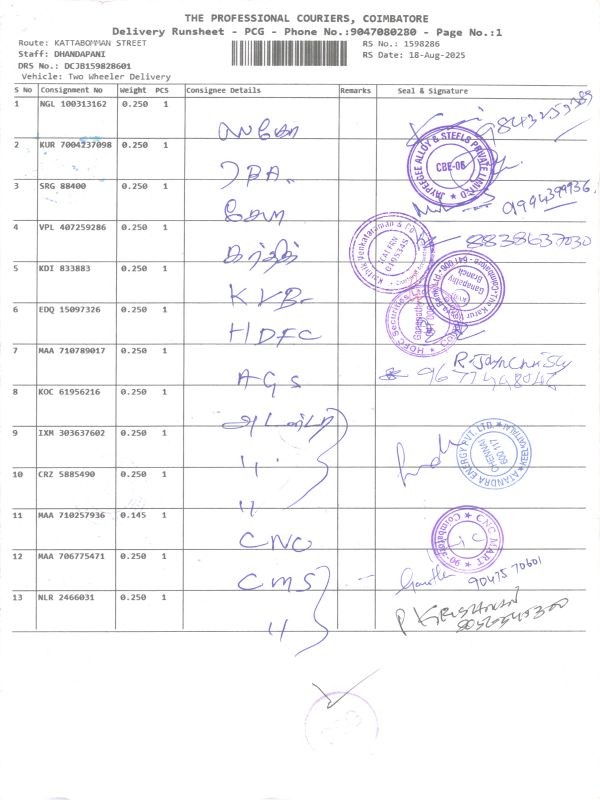 THE PROFESSIONAL COURIERS, COIMBATORE
Delivery Runsheet - PCG - Phone No.:9047080280 - Page No.:1
Route: KATTABOMMAN STREET
Staff: DHANDAPANI
DRS No.: DCJB159828601
Vehicle: Two Wheeler Delivery
RS No.: 1598286
RS Date: 18-Aug-2025
S No Consignment No Weight PCS Consignee Details Remarks Seal & Signature
1 NGL 100313162 0.250 1
2 KUR 7004237098 0.250 1
JAYPEEGEE ALLOY & STEELS PRIVATE LIMITED
CBE-06
3 SRG 88400 0.250 1 9994399936
4 VPL 407259286 0.250 1 கார்த்திக் 8838637030
Karthik Venkataraman & Co
5 KDI 833883 0.250 1 KVB
Ganapathy Branch
6 EDQ 15097326 0.250 1 HDFC
HDFC Securities
7 MAA 710789017 0.250 1 AGS
8 KOC 61956216 0.250 1
9 IXM 303637602 0.250 1 "
ATANDRA ENERGY PVT. LTD.
CHENNAI
600 117
10 CRZ 5885490 0.250 1 "
11 MAA 710257936 0.145 1 CNC
CNC MART
Coimbatore-06
12 MAA 706775471 0.250 1 CMS 9047570601
13 NLR 2466031 0.250 1 "
P KRISHNAN